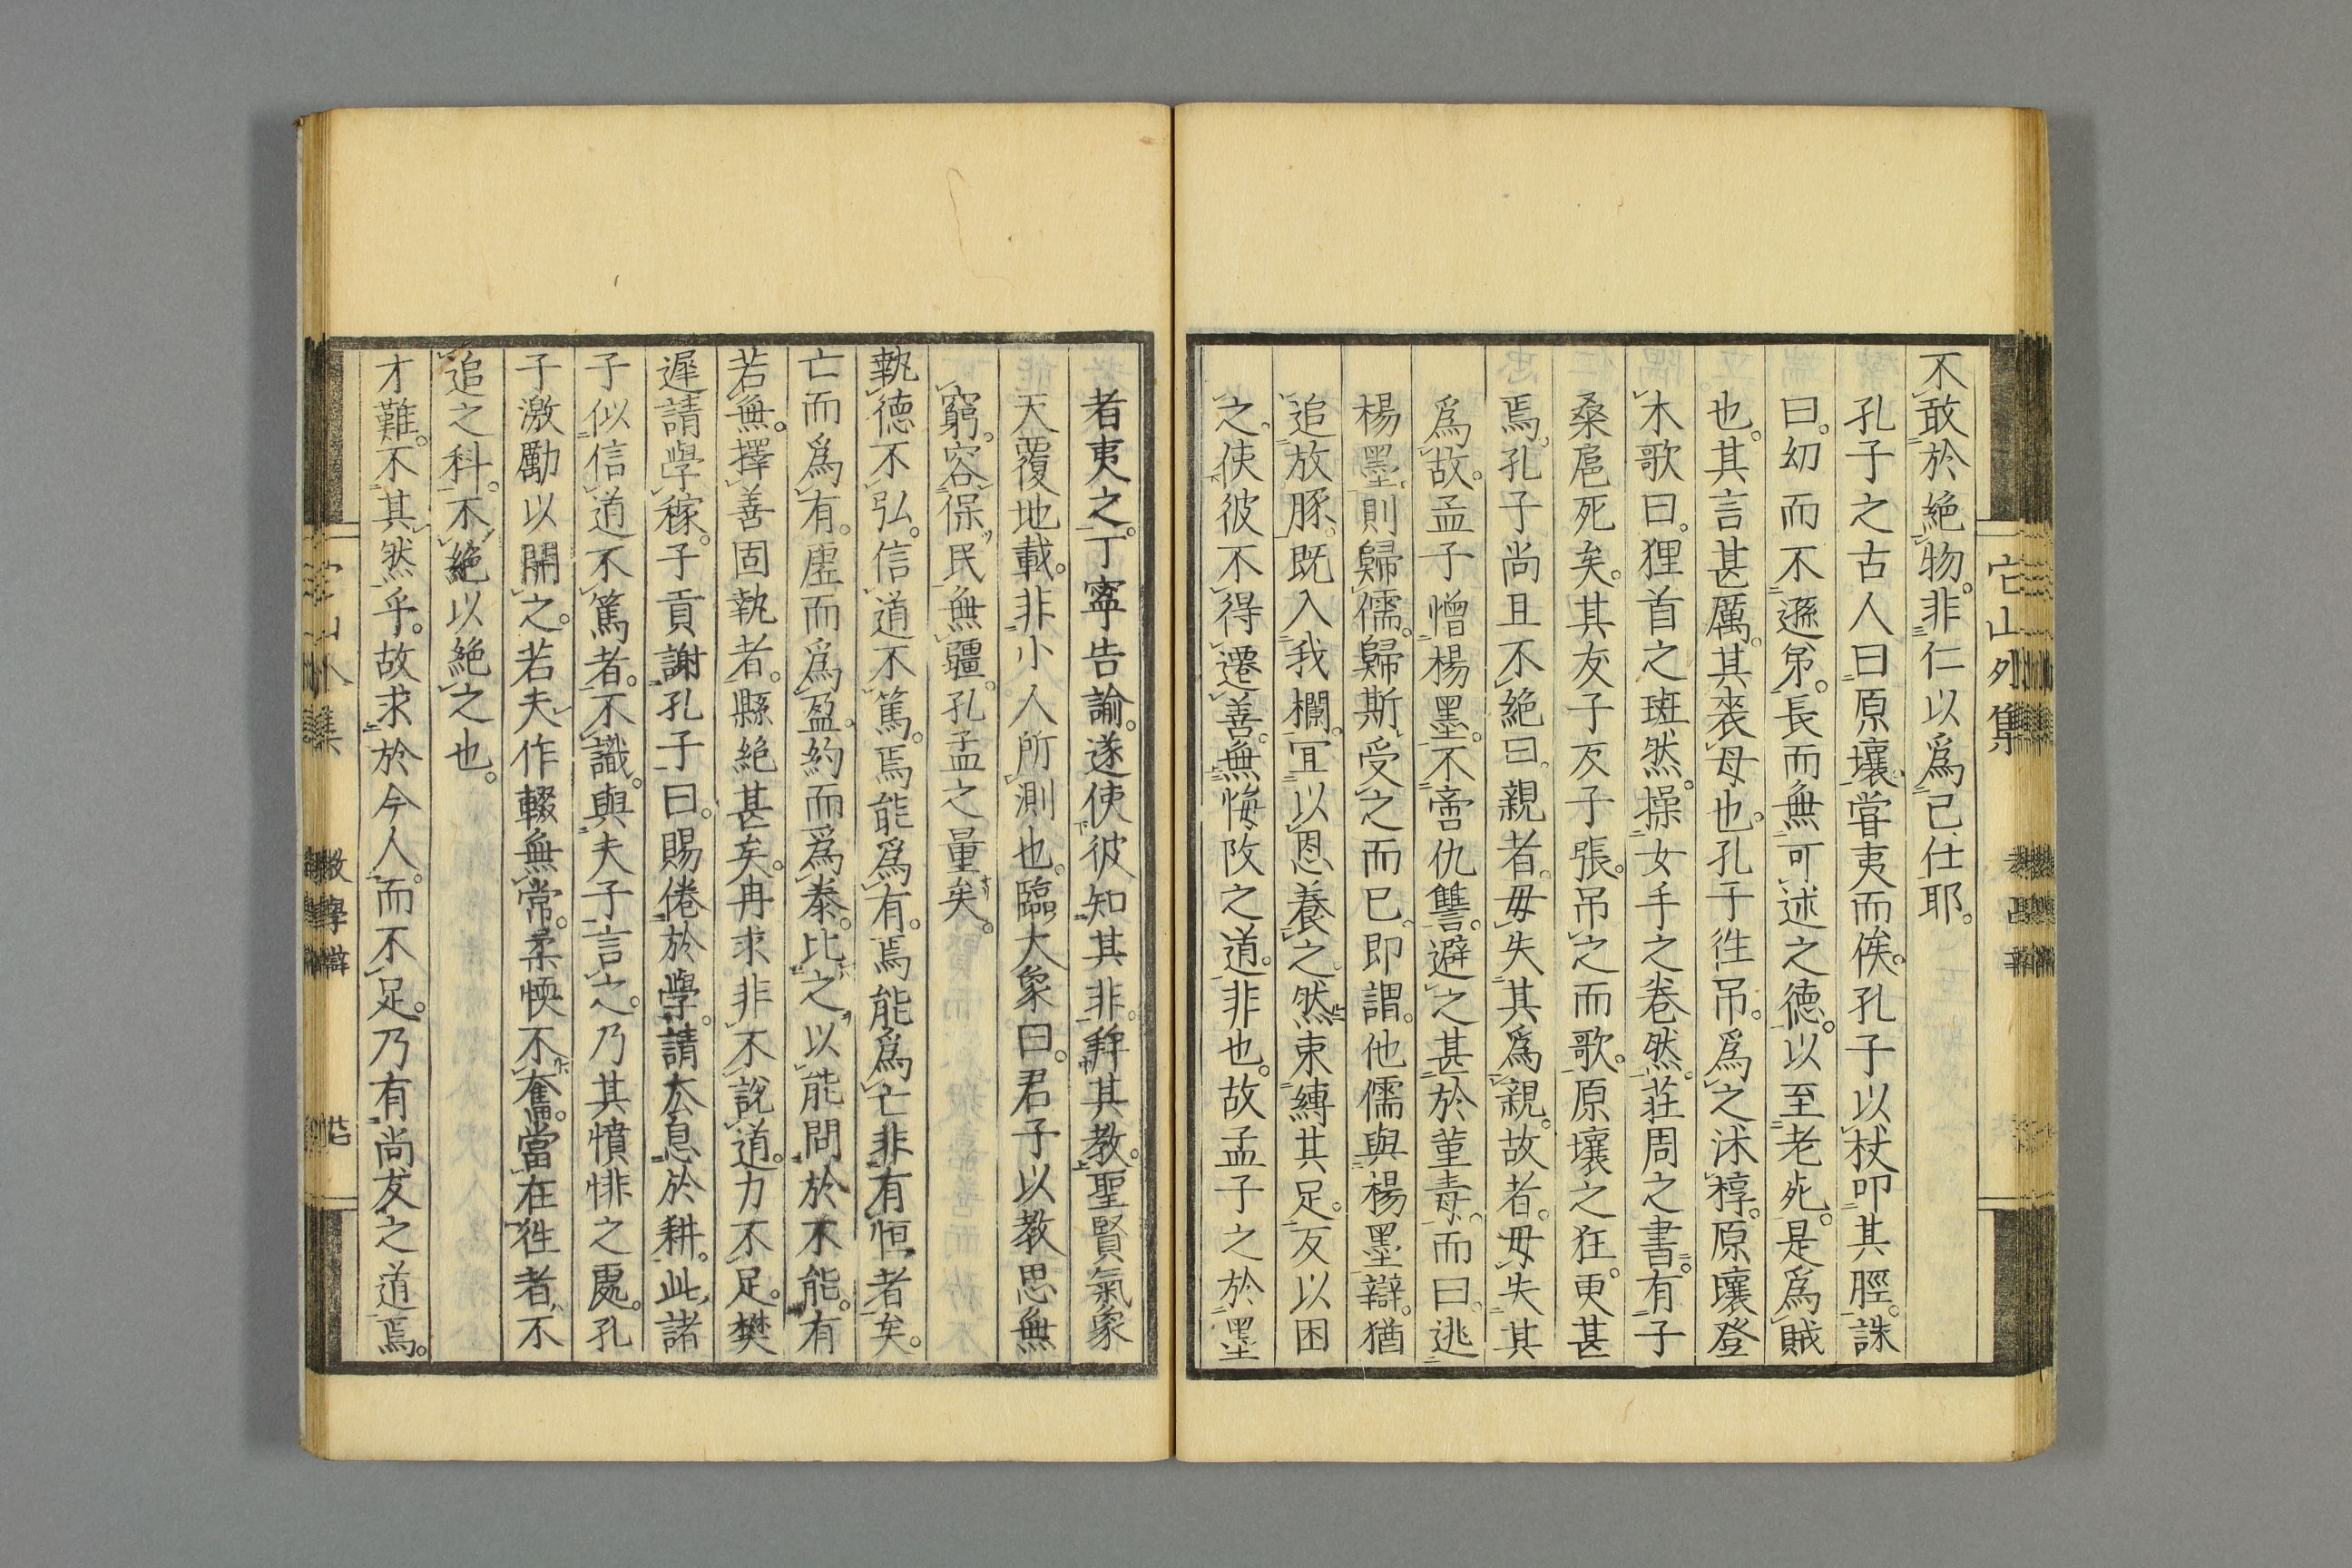 不敢於絶物。非仁以爲己任耶。
孔子之古人曰原壤、甞夷而俟。孔子以杖叩其脛。誅
曰。幼而不遜弟。長而無可述之德。以至老死。是爲賊
也。其言甚厲。其喪母也。孔子往吊。爲之沐椁。原壤登
木歌曰。狸首之班然。操女手之卷然。莊周之書。有子
桑扈死矣。其友子反子張。吊之而歌。原壤之狂。更甚
焉。孔子尚且不絶曰。親者。毋失其爲親。故者。毋失其
爲故。孟子憎楊墨。不啻仇讐。避之甚於菫毒。而曰。逃
楊墨則歸儒。歸斯受之而已。即謂。他儒與楊墨辯。猶
追放豚。既入我欄。宜以恩養之。然束縛其足。反以困
之。使彼不得遷善。無悔改之道。非也。故孟子之於墨
者夷之。丁寧告諭。遂使彼知其非。辭其教。聖賢氣象
天覆地載。非小人所測也。臨大象曰。君子以教思無
窮。容保民無疆。孔孟之量矣。
執德不弘。信道不篤。焉能爲有。焉能爲亡。非有恒者矣。
亡而爲有。虛而爲盈。約而爲泰。比之以能問於不能。有
若無。擇善固執者。縣絶甚矣。冉求非不説道。力不足。樊
遲請學稼。子貢謝孔子曰。賜倦於學。請太息於耕。此諸
子似信道不篤者。不識。與夫子言之。乃其憤悱之處。孔
子激勵以開之。若夫作輟無常。柔愞不奮。當在往者不
追之科。不絶以絶之也。
才難。不其然乎。故求於今人。而不足。乃有尚友之道焉。
它山外集
教學辯